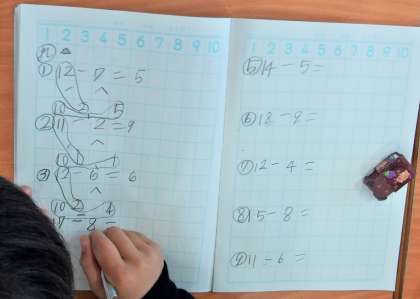 1 2 3 4 5 6 7 8 9 10
① 12 - 7 = 5
10 2 5
② 11 - 2 = 9
10 1 1
③ 12 - 6 = 6
10 2 4
17 - 8 =
1 2 3 4 5 6 7 8 9 10
⑤ 14 - 5 =
⑥ 18 - 9 =
⑦ 12 - 4 =
⑧ 15 - 8 =
⑨ 11 - 6 =